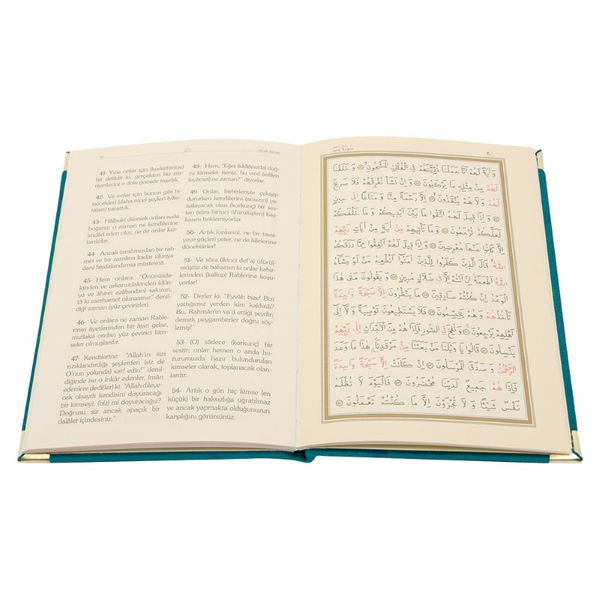 41- Yine onlar için (kudretimize)
bir delildir ki, gerçekten biz zür-
riyetlerini o dolu gemide taşıdık.
42- Ve onlar için bunun gibi bi-
necekleri (daha nice şeyleri)
yarattık.
43- Hâlbuki dilersek onları suda
boğarız; o zaman ne kendilerine
imdâd eden olur, ne de onlar kur-
tarılırlar.
44- Ancak tarafımızdan bir rah-
met ve bir zamana kadar (dünya-
dan) faydalandırma müstesnâ.
45- Hem onlara: "Önünüzde-
kinden ve arkanızdakinden (dün-
ya ve âhiret azâbından) sakının;
tâ ki merhamet olunasınız" denil-
diği zaman (yüz çevirirler).
46- Ve onlara ne zaman Rable-
rinin âyetlerinden bir âyet gelse,
mutlaka ondan yüz çevirici kim-
seler olmuşlardır.
47- Kendilerine: "Allah'ın sizi
rızıklandırdığı şeylerden (siz de
O'nun yolunda) sarf edin!" denil-
diğinde ise o inkâr edenler, îmân
edenlere dediler ki: "Allah dileye-
cek olsaydı kendisini doyuracağı
bir kimseyi, (biz) mi doyuracağız?
Doğrusu siz ancak apaçık bir
dalâlet içindesiniz."
48- Hem, "Eğer (iddiânızda) doğru
kimseler iseniz, bu vaad (edilen
kıyâmet) ne zaman?" diyorlar.
49- Onlar, birbirleriyle çekişip
dururlarken kendilerini (ansızın) ya-
kalayacak olan (korkunç) bir ses-
ten (sûra birinci üfürülüşten) baş-
kasını beklemiyorlar.
50- Artık (onlar) ne bir tavsi-
yeye güçleri yeter, ne de âilelerine
dönebilirler.
51- Ve sûra (ikinci def'a) üfürül-
müştür de bakarsın ki onlar kabir-
lerinden (kalkıp) Rablerine koşu-
yorlar.
52- Derler ki: "Eyvâh bize! Bizi
yattığımız yerden kim kaldırdı?
Bu, Rahmân'ın va'd ettiği şeydir;
demek peygamberler doğru söyle-
miş!"
53- (O) sâdece (korkunç) bir
sestir; onlar hemen o anda hu-
zurumuzda hazır bulundurulan
kimseler olarak, toplanacak olan-
lardır.
54- Artık o gün hiç kimse (en
küçük) bir haksızlığa uğratılmaz
ve ancak yapmakta olduğunuzun
karşılığını görürsünüz.
وَآيَةٌ لَهُمْ أَنَّا حَمَلْنَا ذُرِّيَّتَهُمْ فِي الْفُلْكِ الْمَشْحُونِ ۞ وَخَلَقْنَا
لَهُمْ مِنْ مِثْلِهِ مَا يَرْكَبُونَ ۞ وَإِنْ نَشَأْ نُغْرِقْهُمْ فَلَا صَرِيخَ
لَهُمْ وَلَا هُمْ يُنْقَذُونَ ۞ إِلَّا رَحْمَةً مِنَّا وَمَتَاعًا إِلَى حِينٍ
۞ وَإِذَا قِيلَ لَهُمُ اتَّقُوا مَا بَيْنَ أَيْدِيكُمْ وَمَا خَلْفَكُمْ
لَعَلَّكُمْ تُرْحَمُونَ ۞ وَمَا تَأْتِيهِمْ مِنْ آيَةٍ مِنْ آيَاتِ رَبِّهِمْ
إِلَّا كَانُوا عَنْهَا مُعْرِضِينَ ۞ وَإِذَا قِيلَ لَهُمْ أَنْفِقُوا مِمَّا رَزَقَكُمُ
اللهُ قَالَ الَّذِينَ كَفَرُوا لِلَّذِينَ آمَنُوا أَنُطْعِمُ مَنْ لَوْ يَشَاءُ
اللهُ أَطْعَمَهُ إِنْ أَنْتُمْ إِلَّا فِي ضَلَالٍ مُبِينٍ ۞ وَيَقُولُونَ مَتَى هَذَا
الْوَعْدُ إِنْ كُنْتُمْ صَادِقِينَ ۞ مَا يَنْظُرُونَ إِلَّا صَيْحَةً وَاحِدَةً
تَأْخُذُهُمْ وَهُمْ يَخِصِّمُونَ ۞ فَلَا يَسْتَطِيعُونَ تَوْصِيَةً وَلَا إِلَى
أَهْلِهِمْ يَرْجِعُونَ ۞ وَنُفِخَ فِي الصُّورِ فَإِذَا هُمْ مِنَ الْأَجْدَاثِ إِلَى رَبِّهِمْ
يَنْسِلُونَ ۞ قَالُوا يَا وَيْلَنَا مَنْ بَعَثَنَا مِنْ مَرْقَدِنَا هَذَا مَا وَعَدَ
الرَّحْمَنُ وَصَدَقَ الْمُرْسَلُونَ ۞ إِنْ كَانَتْ إِلَّا صَيْحَةً وَاحِدَةً
فَإِذَا هُمْ جَمِيعٌ لَدَيْنَا مُحْضَرُونَ ۞ فَالْيَوْمَ لَا تُظْلَمُ
نَفْسٌ شَيْئًا وَلَا تُجْزَوْنَ إِلَّا مَا كُنْتُمْ تَعْمَلُونَ ۞